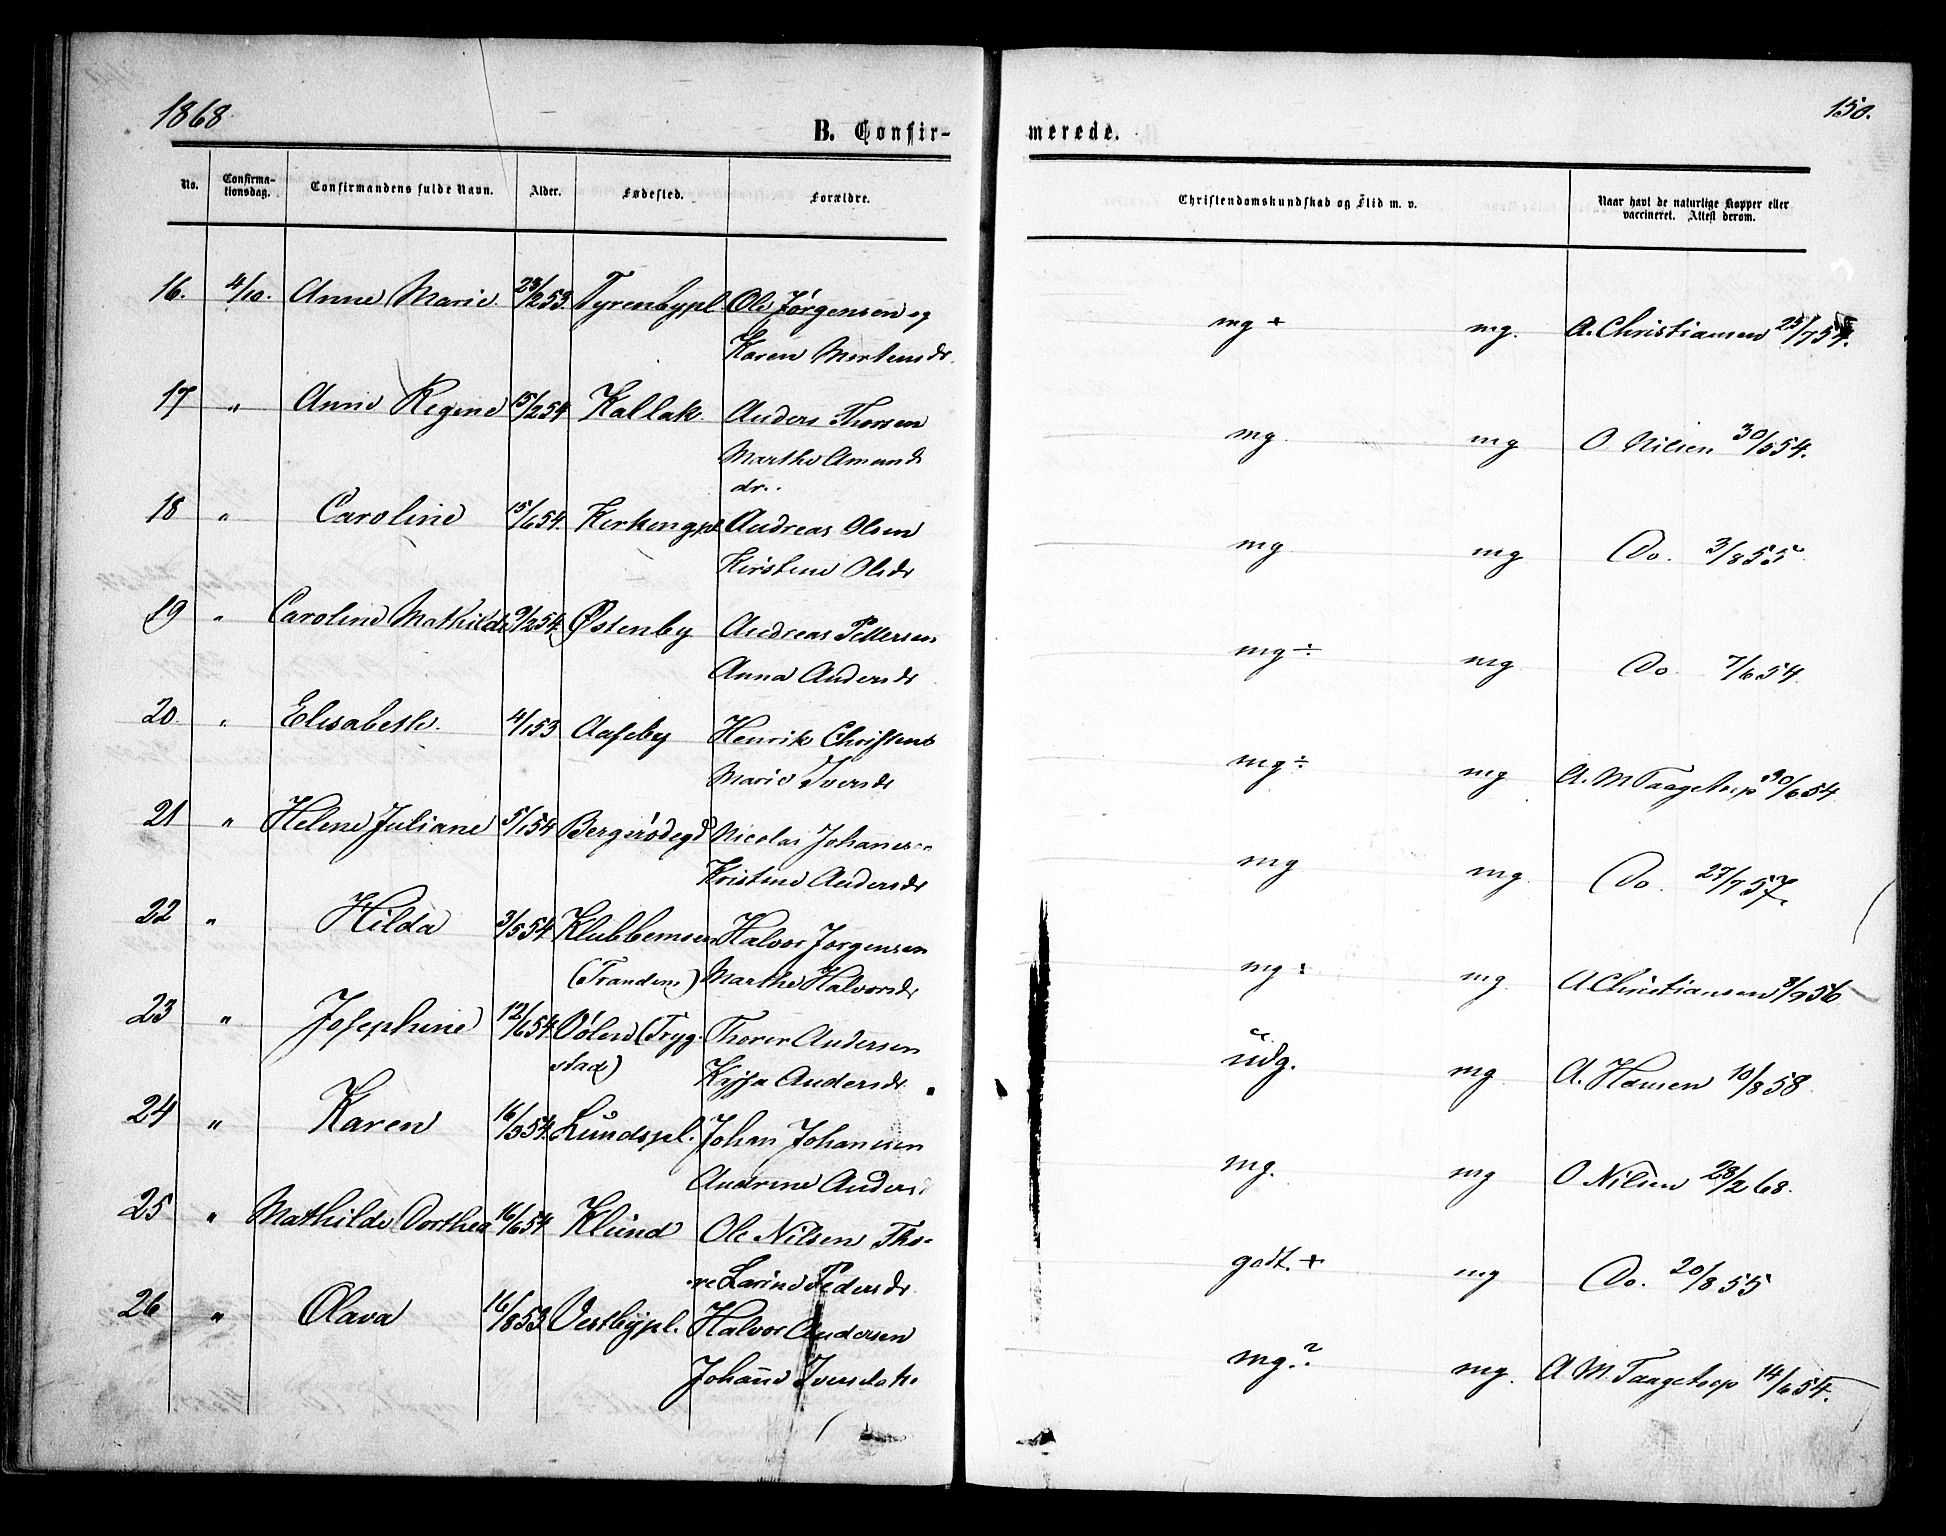 1868
150.
B. Confir-
merede.
No.
Confirma-
tionsdag.
Confirmandens fulde Navn.
Alder.
Fødested.
Forældre.
Christendomskundskab og Flid m. v.
Naar havt de naturlige Kopper eller
vaccineret. Attest derom.
16. 4/10. Anne Marie 23/2 53. Tyrenbypl. Ole Jørgensen og mg + mg. A. Christiansen 25/7 54.
Karen Mortensdr.
17 " Anne Regine 15/2 54 Kallak. Anders Thorsen mg mg O Nilsen 30/5 54.
Marthe Amunds
dr.
18 " Caroline 15/6 54. Kirkengpl Andreas Olsen mg mg Do. 3/8 55
Kirstine Olsdr
19 " Caroline Mathilde 9/2 54. Østenby Andreas Pettersen mg ÷ mg Do 7/6 54
Anna Andersdr
20 " Elisabeth. 4/1 53 Aaseby Henrik Christens mg ÷ mg A. M Taagetorp 30/6 54
Marie Iversdr
21 " Helene Juliane 5/1 54 Bergerødegd Nicolai Johanesen mg mg Do. 27/7 57.
Kristine Andersdr
22 " Hilda 3/5 54 Klubbemoen Halvor Jørgensen mg : mg A Christiansen 8/9 56
(Trandem) Marthe Halvorsdr
23 " Josephine 12/6 54. Vølen (Tryg- Thorer Andersen udg. mg A. Hansen 10/8 58
stad) Andersdr
24 " Karen 16/3 54. Lundspl. Johan Johannesen mg. mg O Nilsen 28/2 68.
Andrine Anders
25 " Mathilde Dorthea 16/6 54. Klund Ole Nilsen Tho- godt. + mg Do. 20/8 55
re Larine Pedersdr
26 " Olava 16/8 53 Vestbypl. Halvor Andersen mg.? mg. A. M. Taagetorp 14/6 54.
Johanne